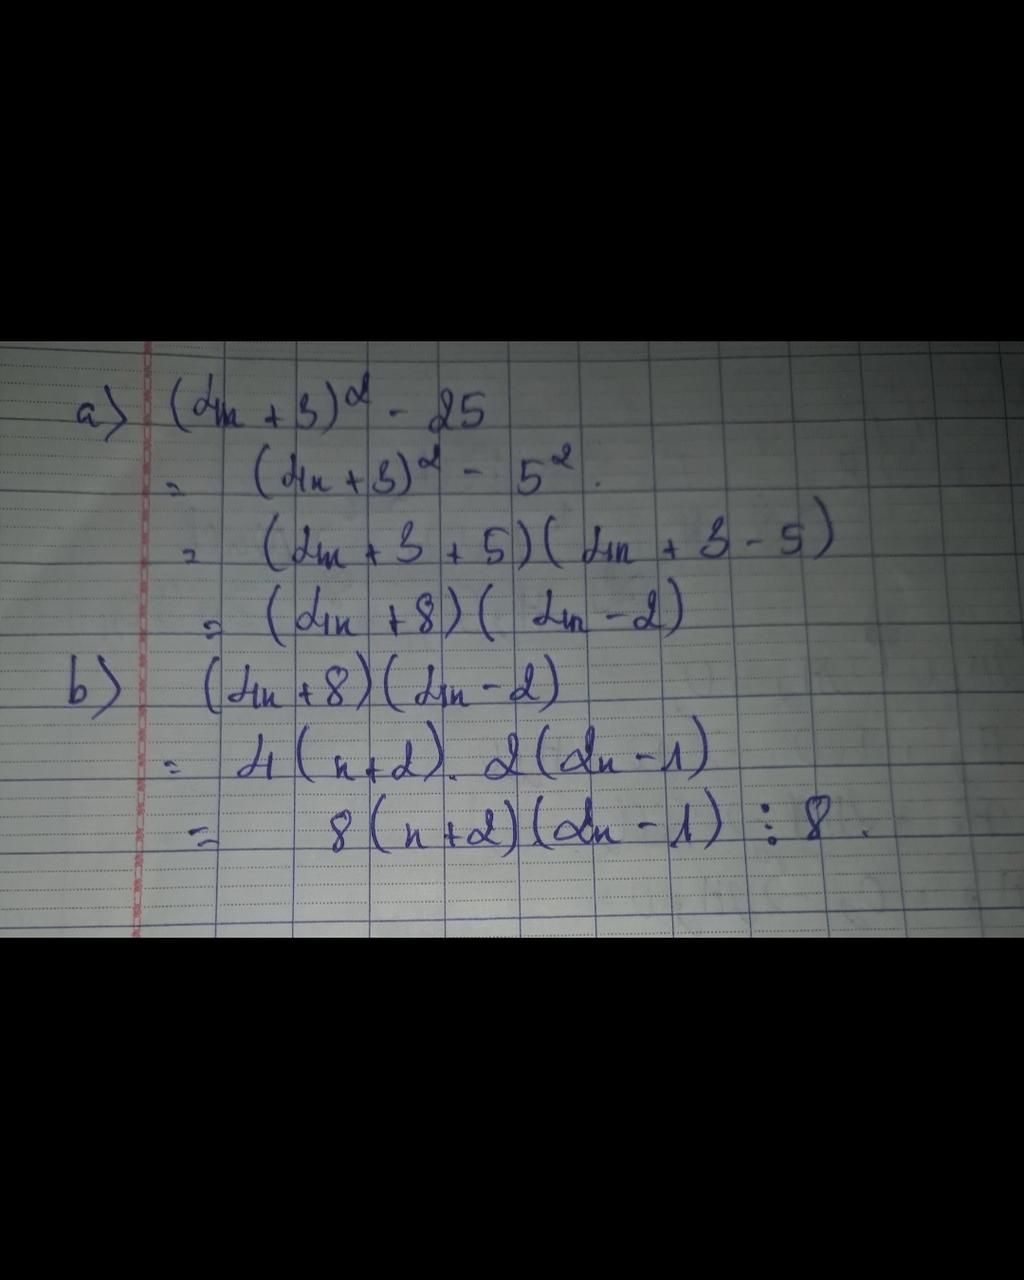 a) (4n + 3)² - 25
= (4n + 3)² - 5².
= (4n + 3 + 5)(4n + 3 - 5)
= (4n + 8)(4n - 2)
b) (4n + 8)(4n - 2)
= 4(n+2). 2(2n - 1)
= 8(n+2)(2n - 1) ⋮ 8.